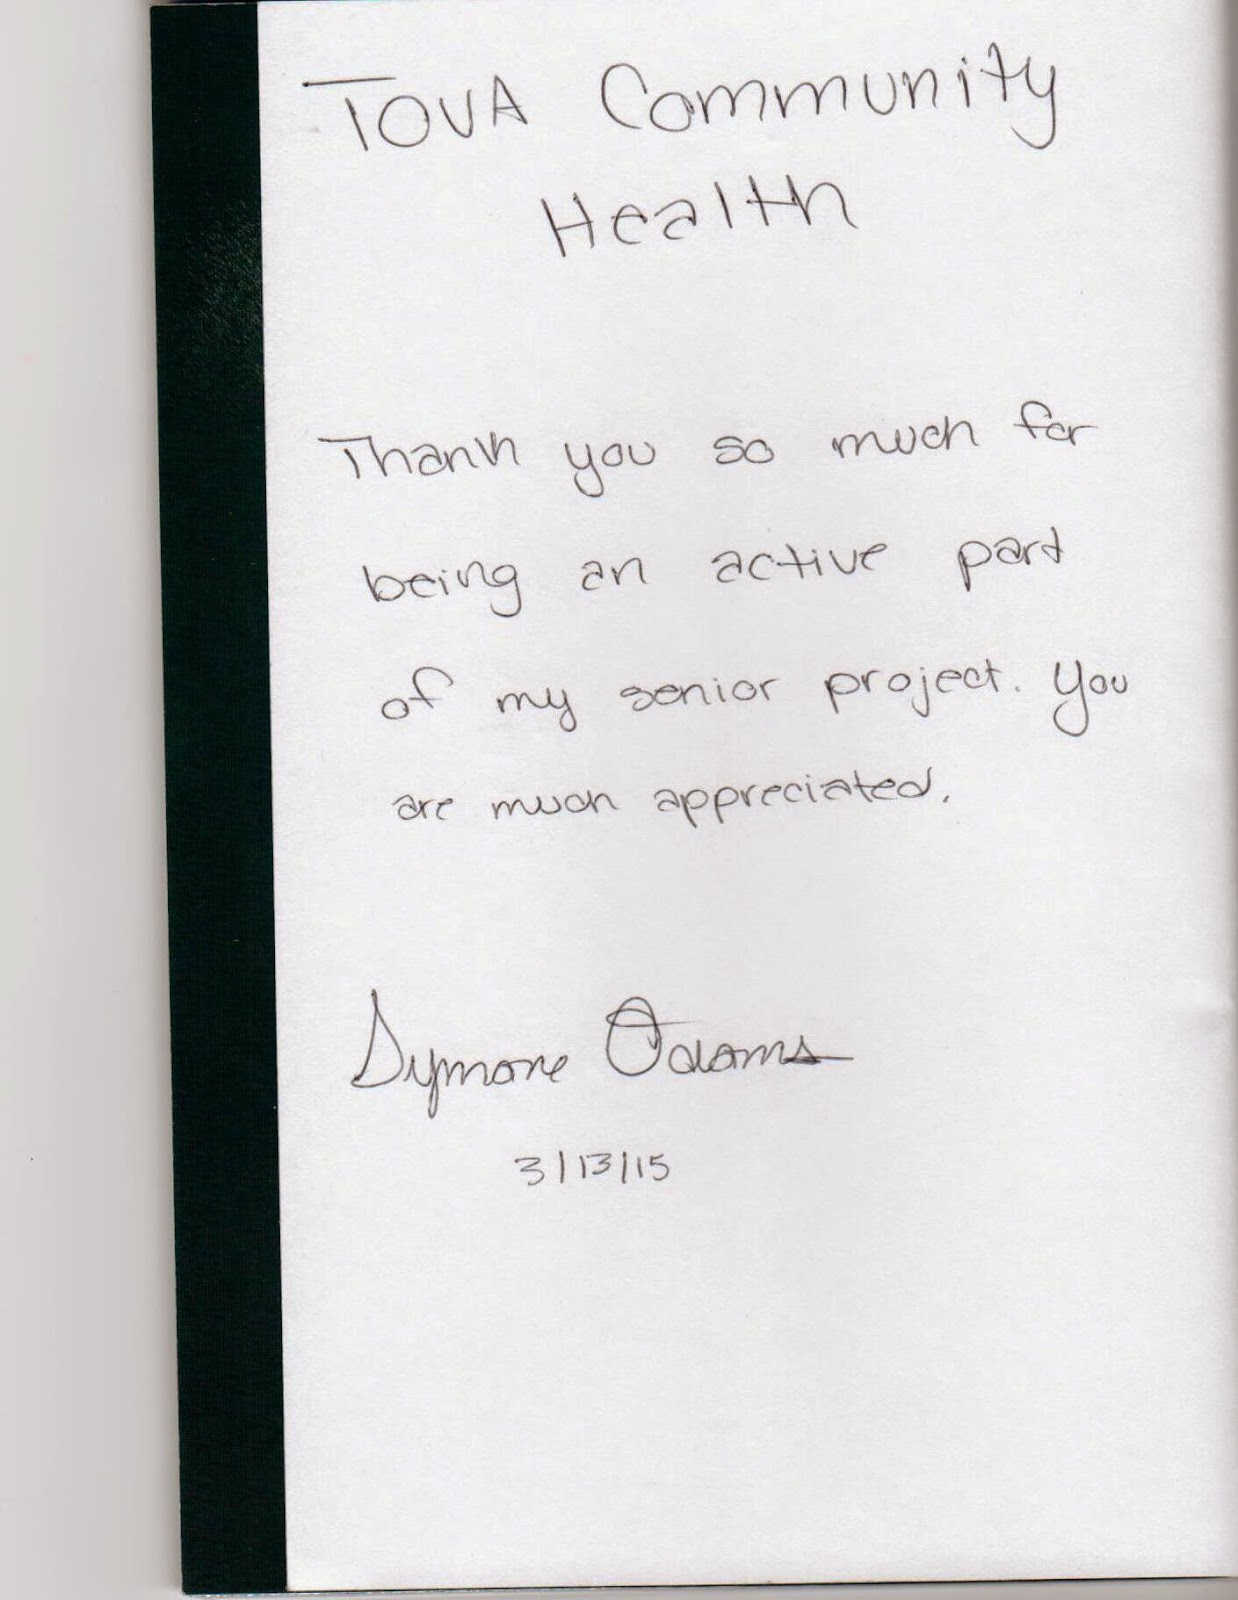 TOVA Community
Health
Thank you so much for
being an active part
of my senior project. You
are much appreciated.
Symone Adams
3/13/15